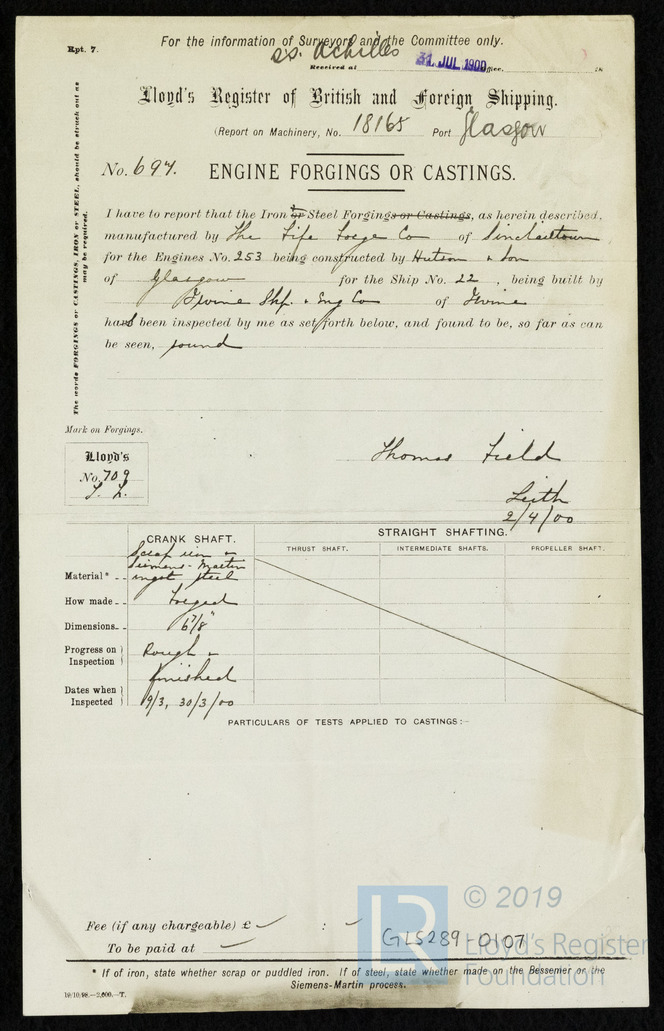 Rpt. 7.
For the information of Surveyors and the Committee only.
s.s. Achilles
Received at
31 JUL 1900
Office,
18
Lloyd's Register of British and Foreign Shipping.
(Report on Machinery, No. 18165 Port Glasgow
No. 697. ENGINE FORGINGS OR CASTINGS.
The words FORGINGS or CASTINGS, IRON or STEEL, should be struck out as
may be required.
I have to report that the Iron & Steel Forgings or Castings, as herein described,
manufactured by The Fife Forge Co of Sinclairtown
for the Engines No. 253 being constructed by Hutson & Son
of Glasgow for the Ship No. 22, being built by
Irvine Shp. & Eng Co of Irvine
have been inspected by me as set forth below, and found to be, so far as can
be seen, sound
Mark on Forgings.
Lloyd's
No. 709
Thomas Field
Leith
2/4/00
CRANK SHAFT. STRAIGHT SHAFTING.
THRUST SHAFT. INTERMEDIATE SHAFTS. PROPELLER SHAFT.
Material* Scrap iron &
Siemens-Martin
ingot steel
How made Forged
Dimensions 6 7/8"
Progress on
Inspection
Rough &
finished
Dates when
Inspected
9/3, 30/3/00
PARTICULARS OF TESTS APPLIED TO CASTINGS:—
Fee (if any chargeable) £ :
To be paid at
GLS289-0107
LR © 2019
Lloyd's Register
Foundation
* If of iron, state whether scrap or puddled iron. If of steel, state whether made on the Bessemer or the
Siemens-Martin process.
19/10/98.—2,600.—T.